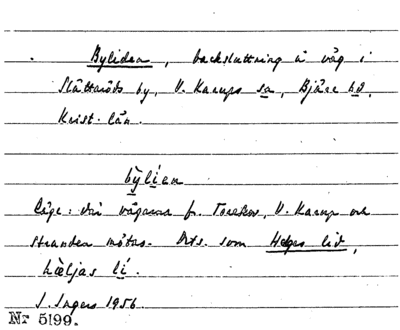 Bylidan, backsluttning å väg i
Slättaröds by, V. Karups sn, Bjäre hd,
Krist. län.
by̱li̱en
Läge: där vägarna fr. Torekov, V. Karup och
stranden mötas. Dets. som Helges lid,
hæljas li̱.
I. Ingers 1956.
Nr 5199.